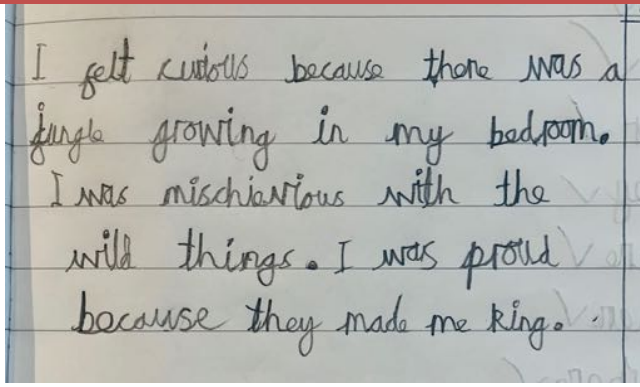 I felt curious because there was a
jungle growing in my bedroom.
I was mischievious with the
wild things. I was proud
because they made me king.